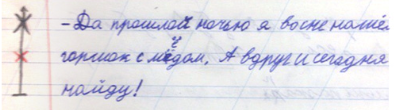 -Да прошлай ночью я восне нашёл
горшок с мёдом. А вдруг и сегодня
найду!